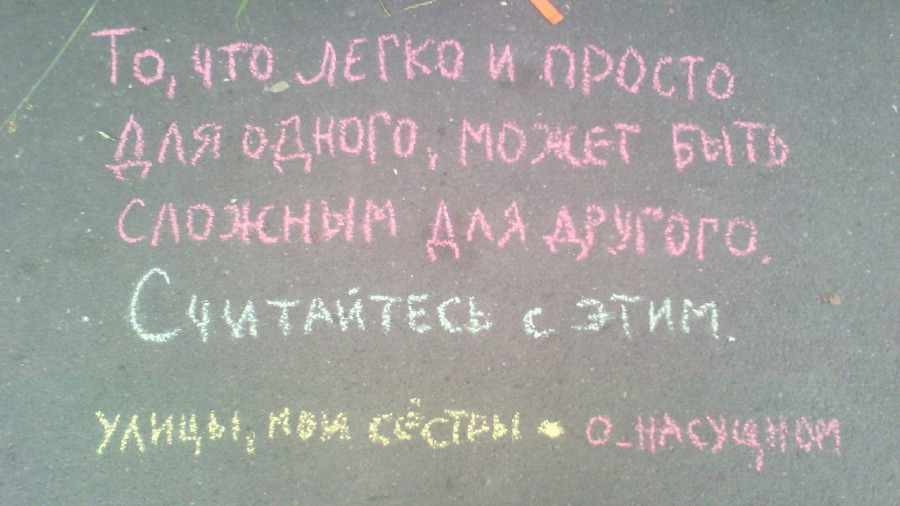 То, что легко и просто
для одного, может быть
сложным для другого.
Считайтесь с этим.
улицы, мои сёстры • о_насущном